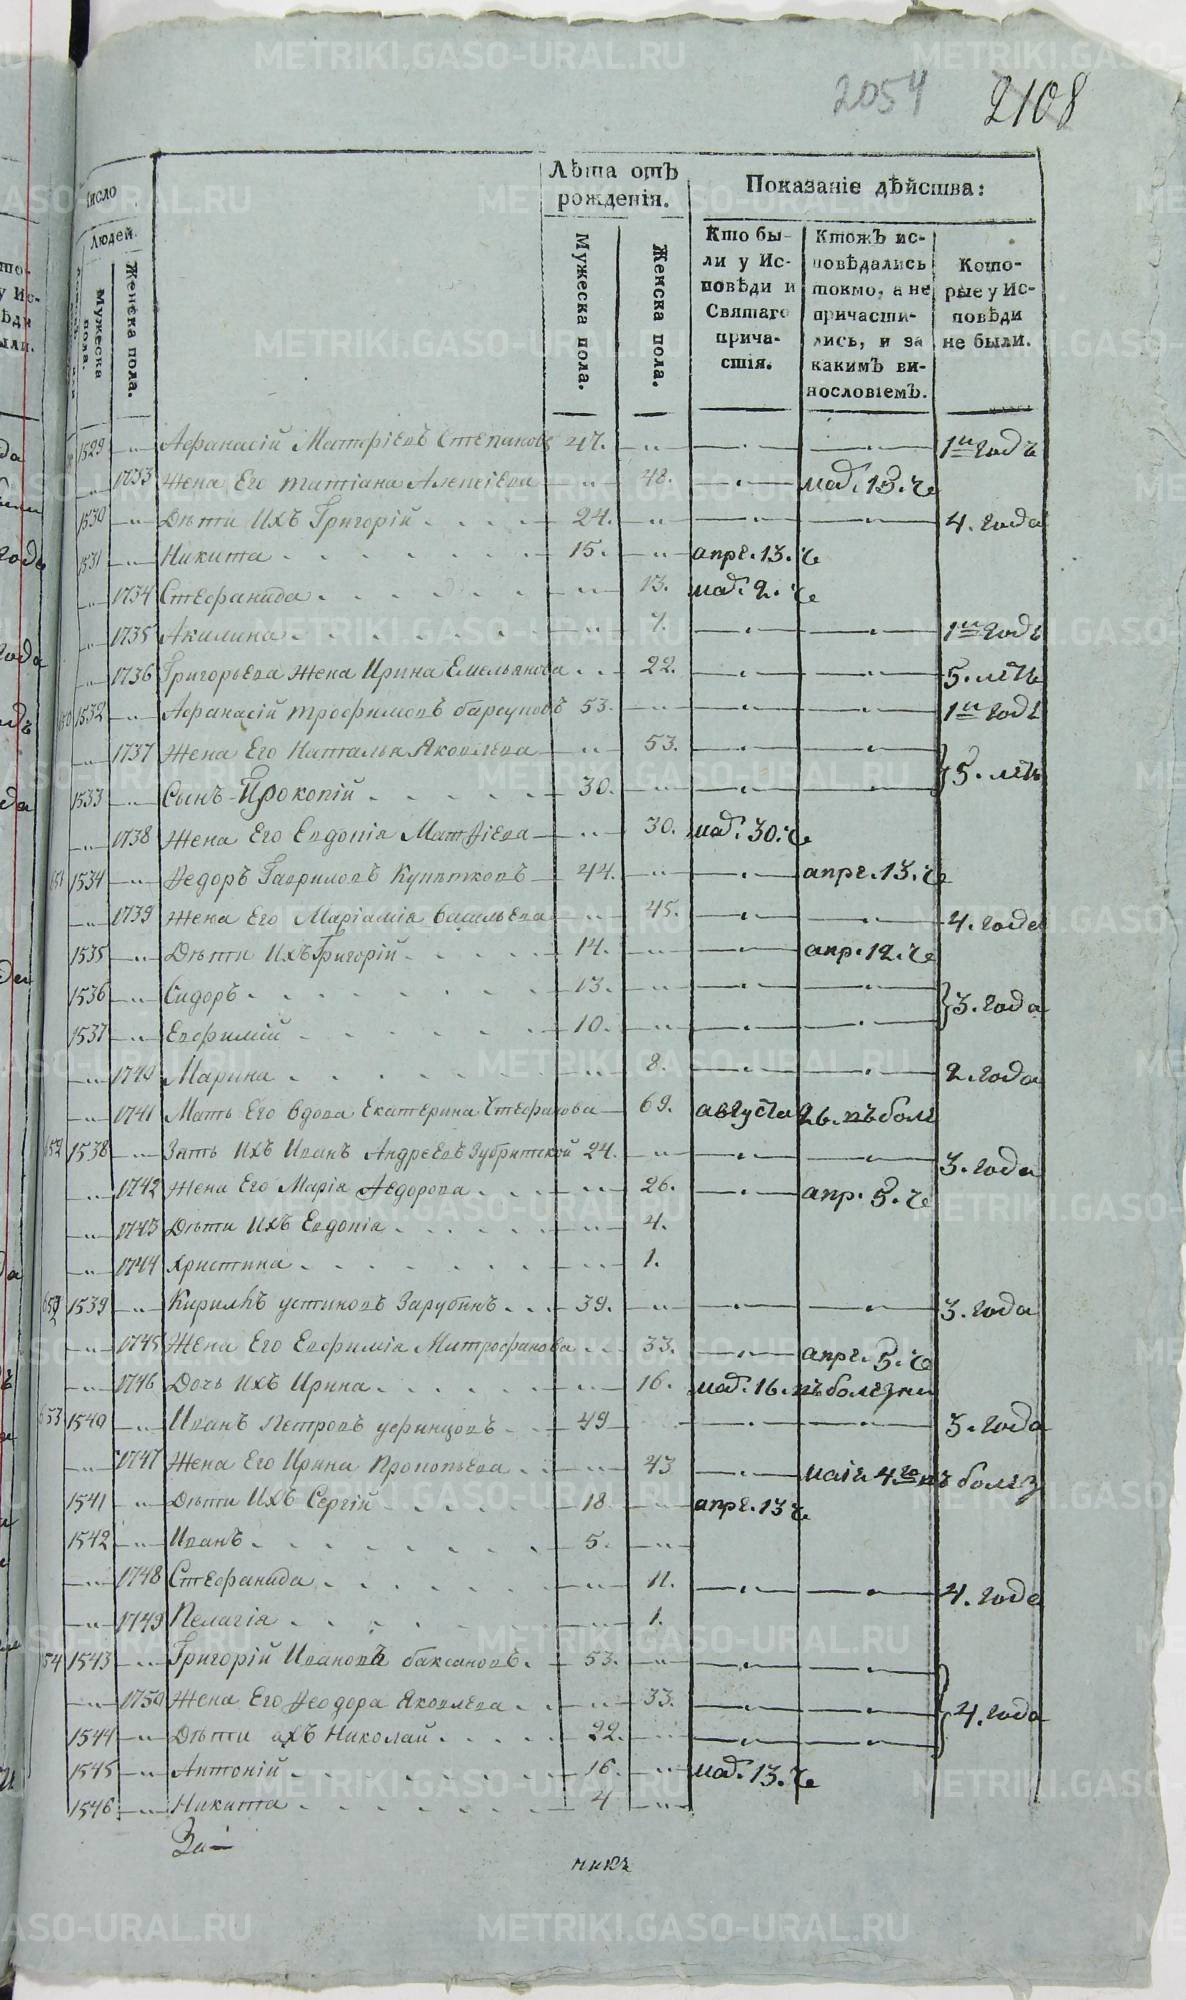 2054 2108
Число Людей.
Мужеска пола.
Женска пола.
Лѣта отъ рожденія.
Мужеска пола.
Женска пола.
Показаніе дѣйства:
Кто бы-
ли у Ис-
повѣди и
Святаго
прича-
стія.
Ктожъ ис-
повѣдались
токмо, а не
причасти-
лись, и за
какимъ ви-
нословіемъ.
Кото-
рые у Ис-
повѣди
не были.
1529 Афанасій Матфіевъ Степановъ 47. 1й годъ
1733 Жена Его Татіана Алексіева 48. мар. 13. че
1530 Дѣти Ихъ Григорій 24. 4. года
1531 Никита 15. апрг. 13. че
1734 Стефанида 13. мар. 2. че
1735 Акилина 7. 1й годъ
1736 Григорьева Жена Ирина Емельянова 22. 5. летъ
1532 Афанасій Трофимовъ барсуковъ 53. 1й годъ
1737 Жена Его Наталья Яковлева 53.
5. летъ
1533 Сынъ Прокопій 30.
1738 Жена Его Евдокія Матфіева 30. мар. 30. че
651 1534 Ѳедоръ Гавриловъ 44. апрг. 13. че
1739 Жена Его Маріамія васильева 45. 4. года
1535 Дѣти Ихъ Григорій 14. апр. 12. че
1536 Сидоръ 13.
3. года
1537 Евфимій 10.
1740 Марина 8. 2. года
1741 Мать Его вдова Екатерина Стефанова 69. августа 26. въ боле
652 1538 Зять Ихъ Иванъ Андреевъ Зубритской 24. 3. года
1742 Жена Его Марія Ѳедорова 26. апр. 5. че
1743 Дѣти Ихъ Евдокія 4.
1744 Христина 1.
1539 Кирилъ устиновъ Зарубинъ 39. 3. года
1745 Жена Его Евфимія Митрофанова 33. апрг. 5. че
1746 Дочь Ихъ Ирина 16. мар. 16. въ болезни
653 1540 Иванъ Петровъ уфинцовъ 49 3. года
1747 Жена Его Ирина Прокопьева 43 маія 4го въ болез
1541 Дѣти Ихъ Сергій 18 апрг. 13 че
1542 Иванъ 5.
1748 Стефанида 11. 4. года
1749 Пелагія 1.
54 1543 Григорій Ивановъ баксановъ. 53.
1750 Жена Его Ѳеодора Яковлева 33.
4. года
1544 Дѣти ихъ Николай 22.
1545 Антоній 16. мар. 13. че
1546 Никита 4
За
никъ
METRIKI.GASO-URAL.RU